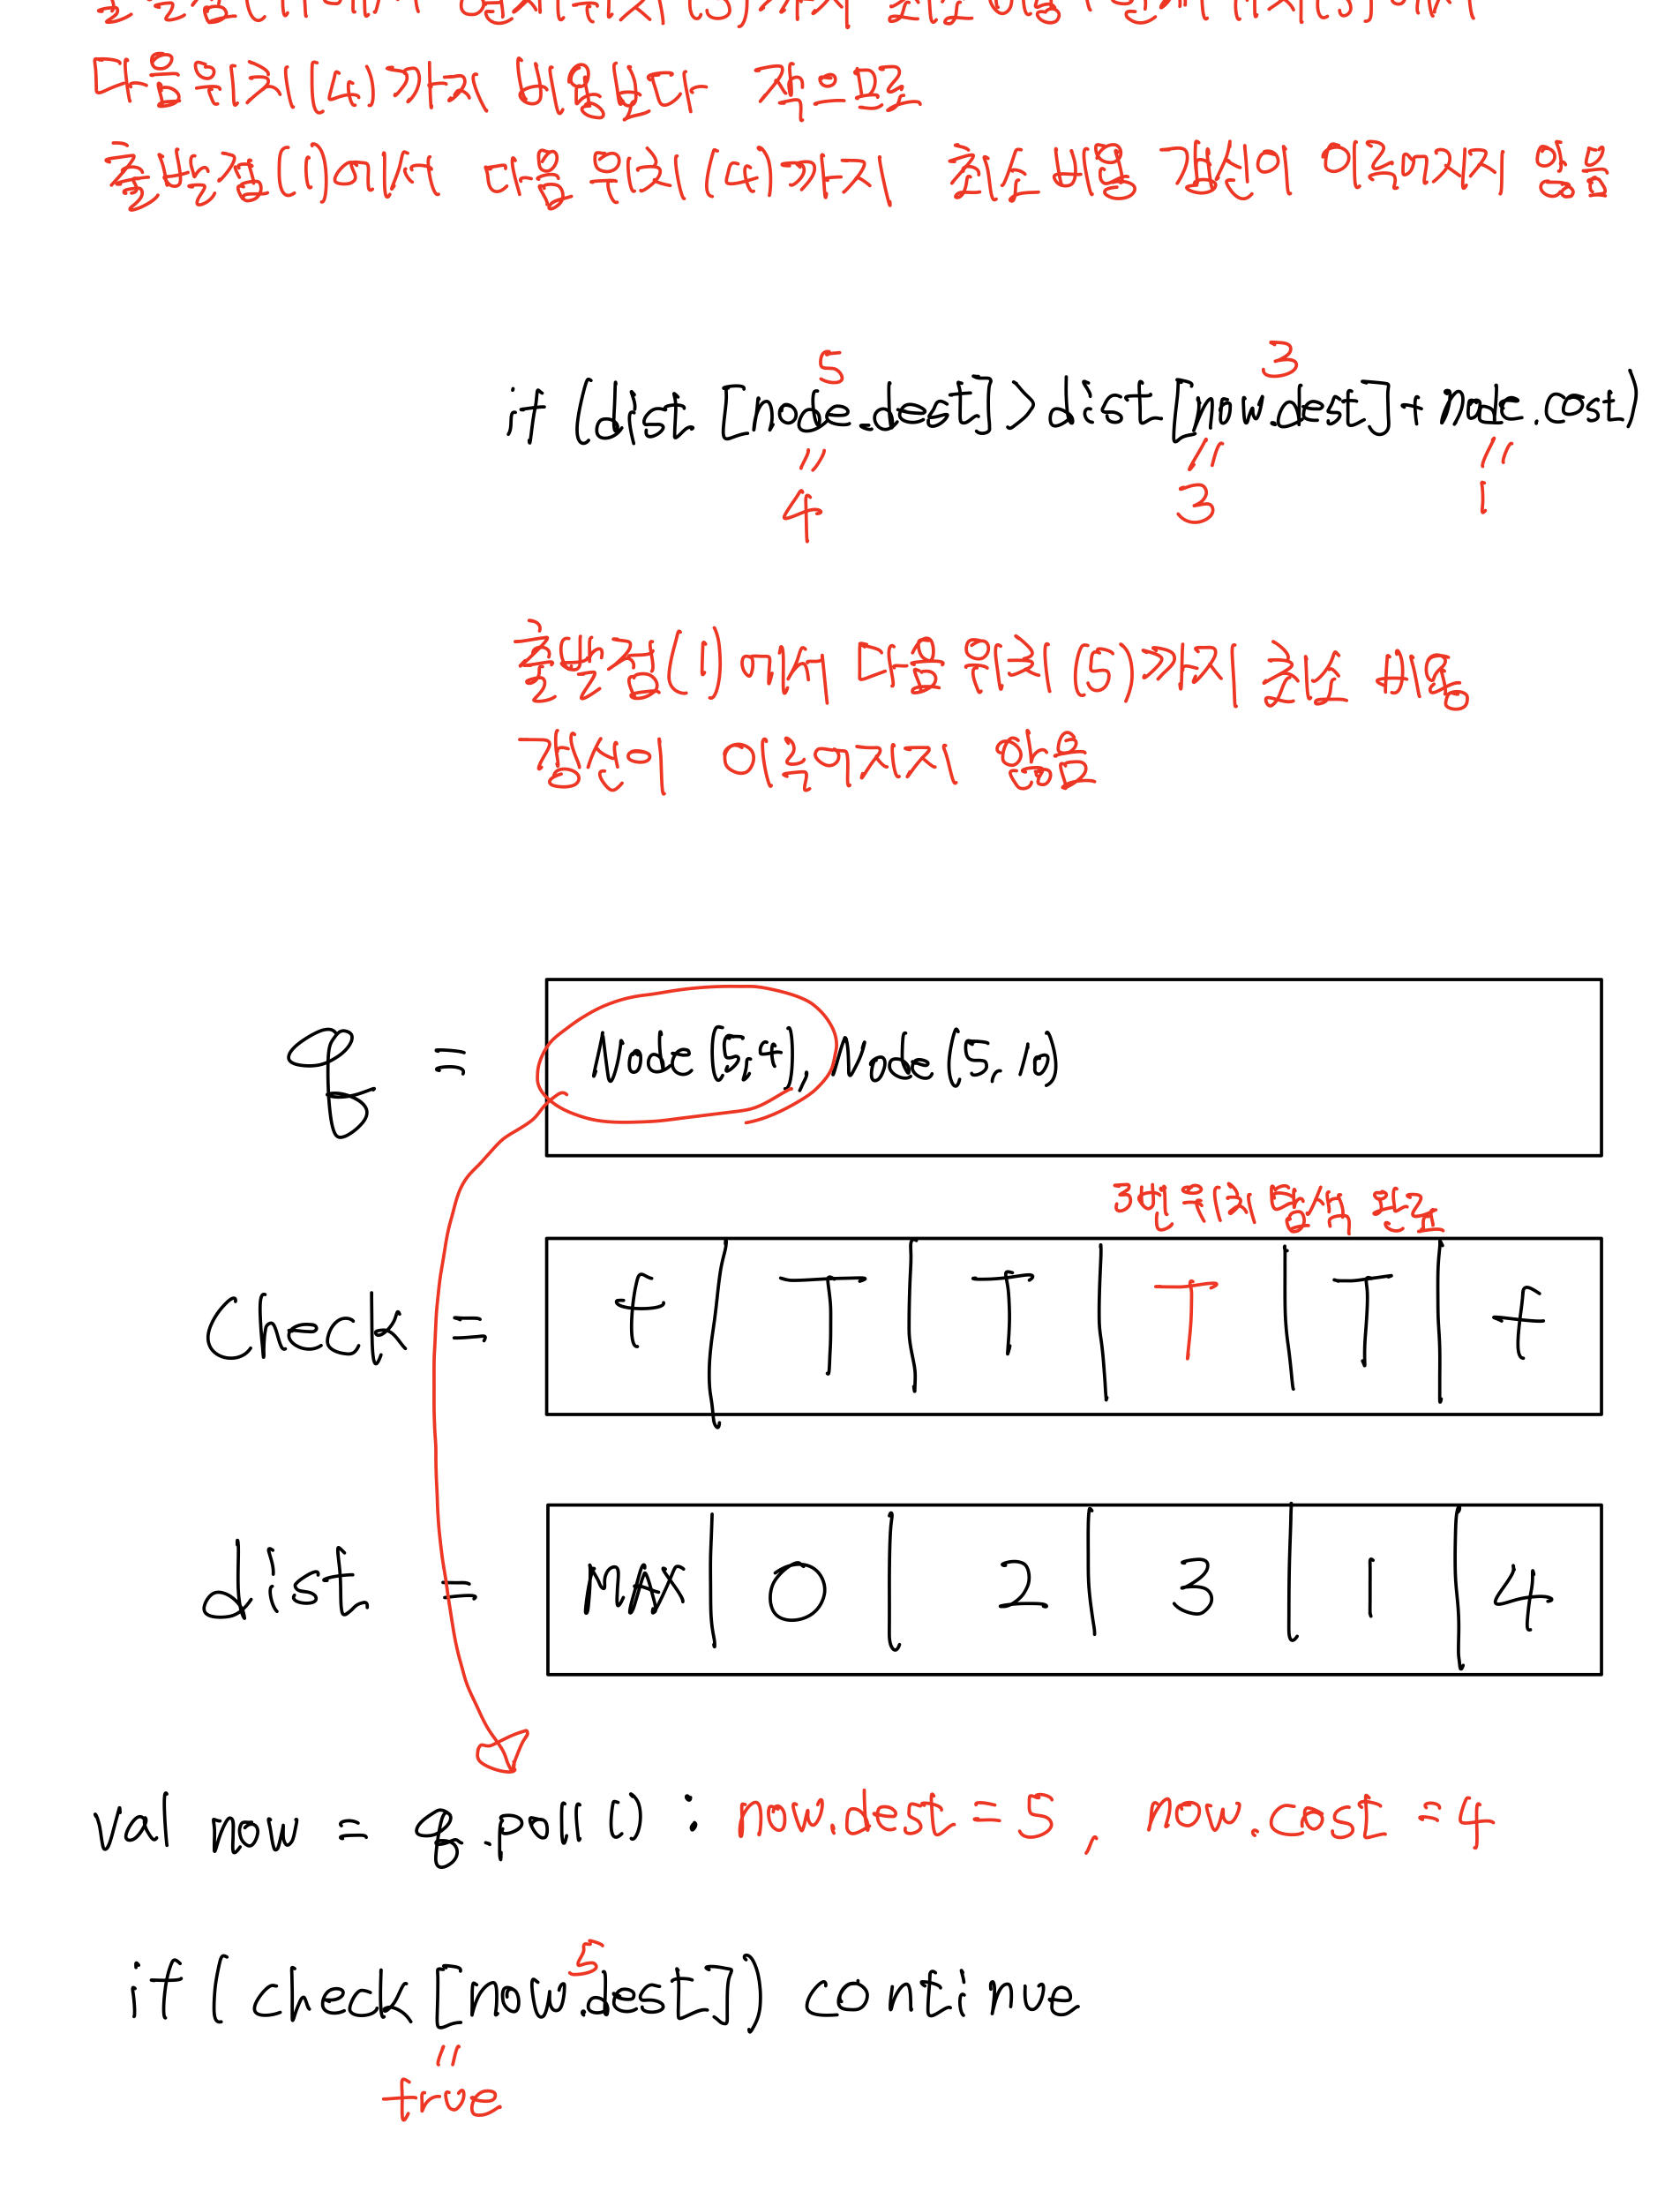 다음위치(4)까지 비용보다 적으므로
출발점(1)에서 다음 위치(4)까지 최소 비용 갱신이 이루어지지 않음
5 3
if (dist [node.dest] > dist [now.dest] + node.cost)
" " "
4 3 1
출발점(1)에서 다음 위치(5)까지 최소 비용
갱신이 이루어지지 않음
q = Node(5,4), Node(5,10)
3번 위치 탐색 완료
Check = f | T | T | T | T | f
dist = MAX | 0 | 2 | 3 | 1 | 4
val now = q.poll() : now.dest = 5, now.cost = 4
5
if (check [now.dest]) continue
"
true